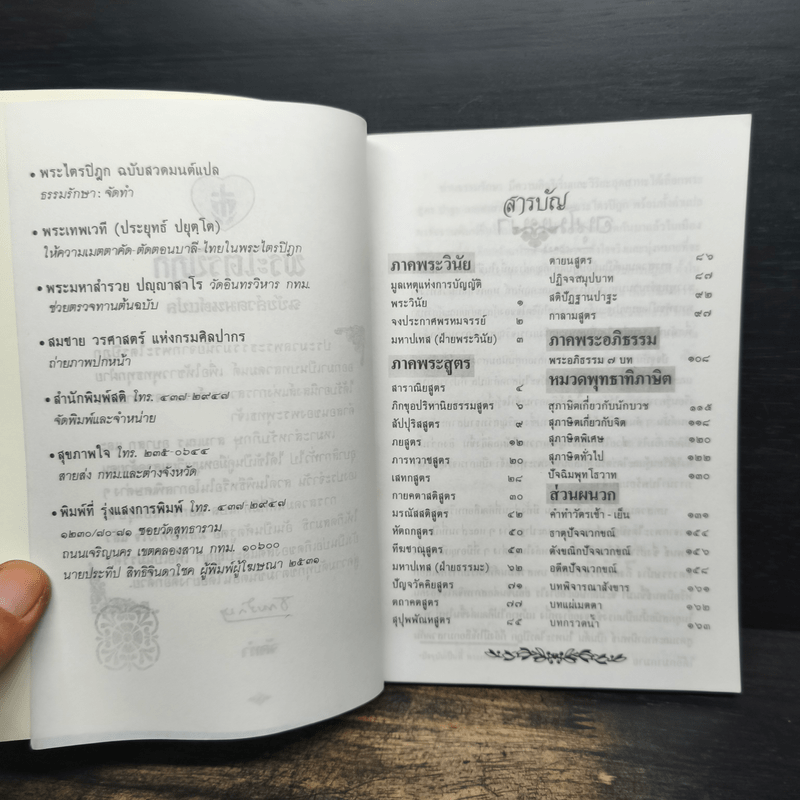 • พระไตรปิฎก ฉบับสวดมนต์แปล
ธรรมรักษา : จัดทำ
• พระเทพเวที (ประยุทธ์ ปยุตฺโต)
ให้ความเมตตาคัด-ตัดตอนบาลี-ไทยในพระไตรปิฎก
• พระมหาสำรวย ปญฺญาสาโร วัดอินทรวิหาร กทม.
ช่วยตรวจทานต้นฉบับ
• สมชาย วรศาสตร์ แห่งกรมศิลปากร
ถ่ายภาพปกหน้า
• สำนักพิมพ์สติ โทร. ๔๓๗-๒๙๔๗
จัดพิมพ์และจำหน่าย
• สุขภาพใจ โทร. ๒๓๕-๐๖๔๔
สายส่ง กทม.และต่างจังหวัด
• พิมพ์ที่ รุ่งแสงการพิมพ์ โทร. ๔๓๗-๒๙๔๗
๑๒๓๐/๗๐-๗๑ ซอยวัดสุทธาราม
ถนนเจริญนคร เขตคลองสาน กทม. ๑๐๖๐๐
นายประทีป สิทธิจินดาโชค ผู้พิมพ์ผู้โฆษณา ๒๕๓๑
สารบัญ
ภาคพระวินัย
มูลเหตุแห่งการบัญญัติ
พระวินัย ๑
จงประกาศพรหมจรรย์ ๒
มหาปเทส (ฝ่ายพระวินัย) ๓
ภาคพระสูตร
สาราณิยสูตร ๔
ภิกขุอปริหานิยธรรมสูตร ๖
สัปปุริสสูตร ๙
ภยสูตร ๑๒
ภารทวาชสูตร ๒๐
เสทกสูตร ๒๘
กายคตาสติสูตร ๓๐
มรณัสสติสูตร ๔๒
หัตถกสูตร ๕๐
ทีฆชาณุสูตร ๕๓
มหาปเทส (ฝ่ายธรรมะ) ๖๒
ปัญจวัคคิยสูตร ๗๑
ตถาคตสูตร ๗๗
สุปุพพัณหสูตร ๘๕
ตายนสูตร ๘๖
ปฏิจจสมุปบาท ๘๗
สติปัฏฐานปาฐะ ๙๒
กาลามสูตร ๙๗
ภาคพระอภิธรรม
พระอภิธรรม ๗ บท ๑๐๘
หมวดพุทธาทิภาษิต
สุภาษิตเกี่ยวกับนักบวช ๑๑๕
สุภาษิตเกี่ยวกับจิต ๑๑๘
สุภาษิตพิเศษ ๑๒๐
สุภาษิตทั่วไป ๑๒๒
ปัจฉิมพุทโธวาท ๑๓๐
ส่วนผนวก
คำทำวัตรเช้า - เย็น ๑๓๑
ธาตุปัจจเวกขณ์ ๑๕๔
ตังขณิกปัจจเวกขณ์ ๑๕๖
อตีตปัจจเวกขณ์ ๑๕๘
บทพิจารณาสังขาร ๑๖๑
บทแผ่เมตตา ๑๖๒
บทกรวดน้ำ ๑๖๓